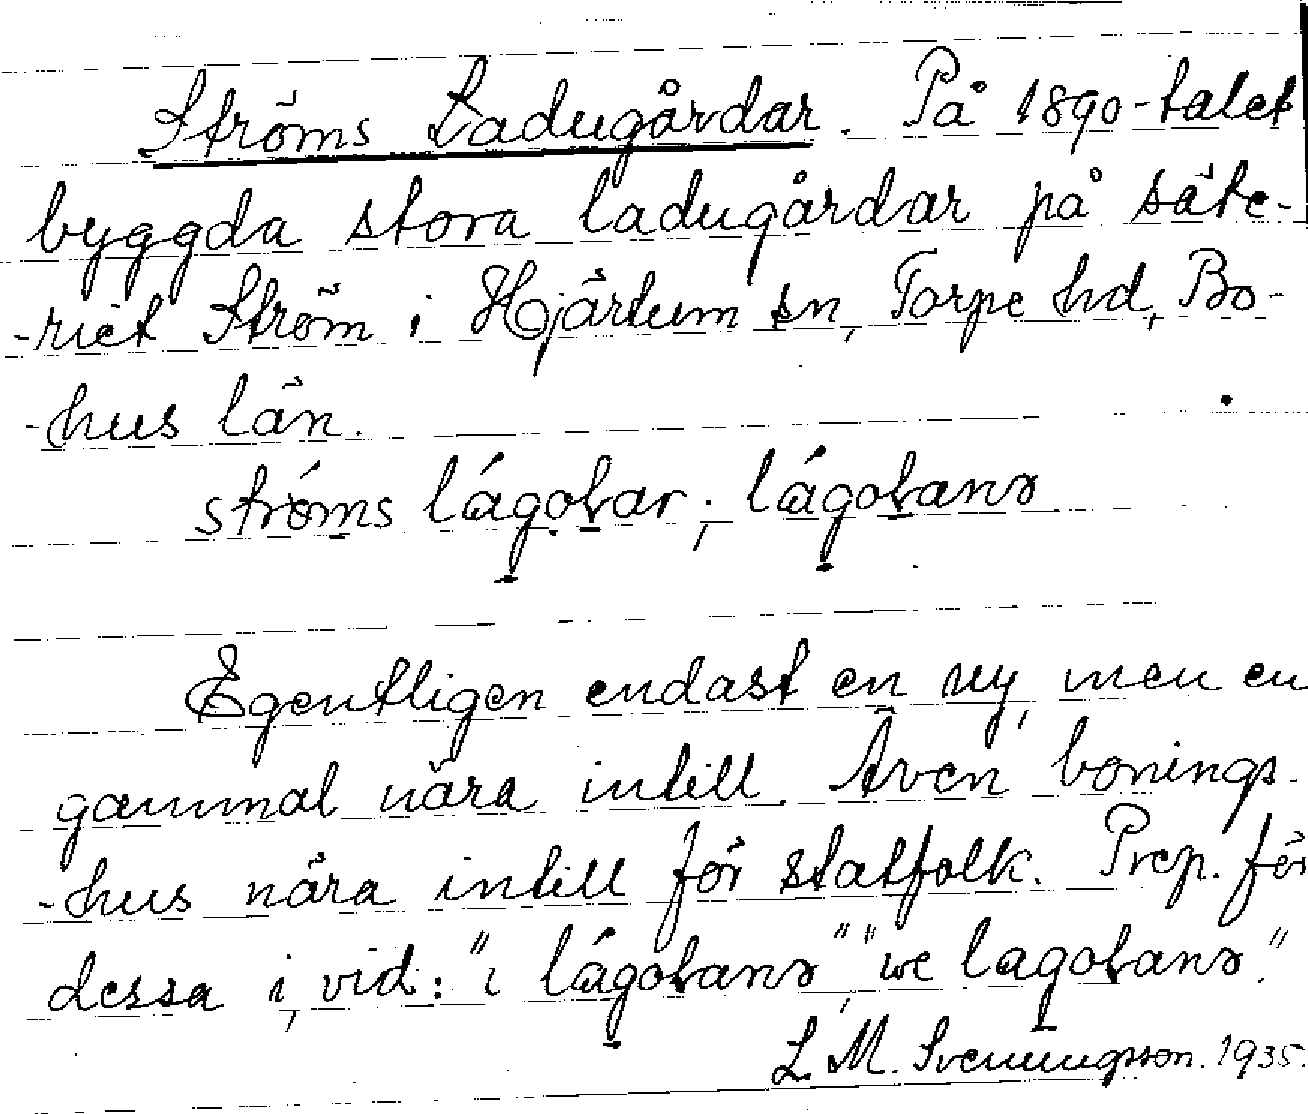 Ströms Ladugårdar. På 1890-talet
byggda stora ladugårdar på säte-
-riet Ström i Hjärtum sn, Torpe hd, Bo-
-hus län.
ströms
Egentligen endast en ny, men en
gammal nära intill. Även bonings-
-hus nära intill för statfolk. Prep. för
dessa i, vid: "i
L. M. Svenningsson. 1935.